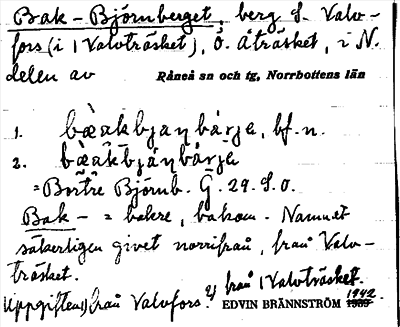 Bak-Björnberget, berg S. Valv-
fors (i 1 Valvträsket), ö. Åträsket, i N.
delen av Råneå sn och tg, Norrbottens län
1. bæ̀akbjaṇbárjə, bf. n.
2. bæ̀akbjáṇbàrjə
=Bortre Björnb. G. 29. S. O.
Bak- = bakre, bakom. Namnet
säkerligen givet norrifrån, från Valv-
träsket.
Uppgiften 1) från Valvfors. 2) från 1 Valvträsket.
EDVIN BRÄNNSTRÖM 1942.